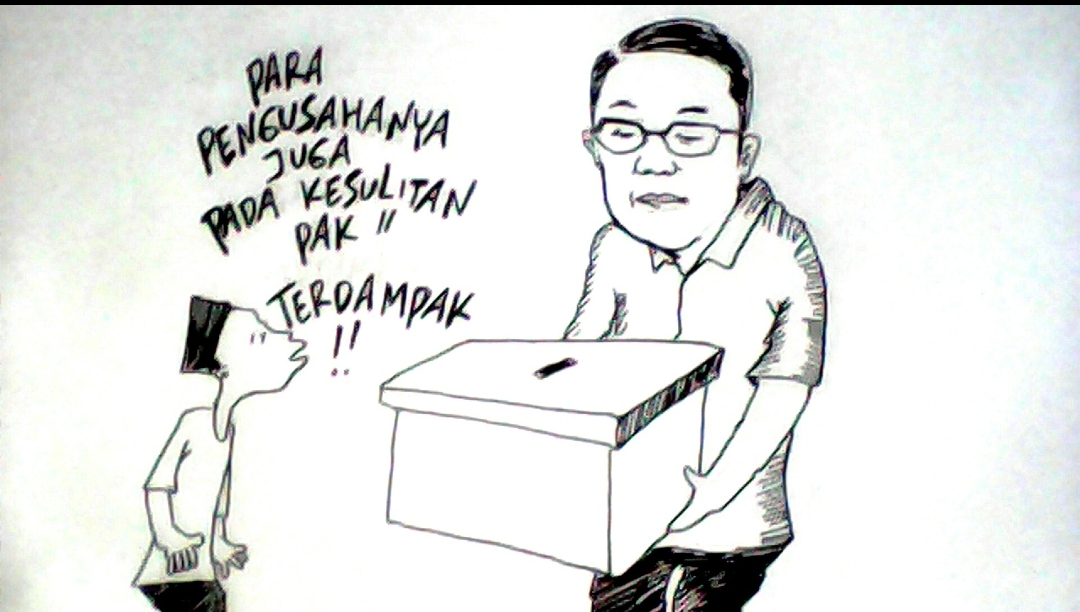 PARA
PENGUSAHANYA
JUGA
PADA KESULITAN
PAK "
TERDAMPAK
!!